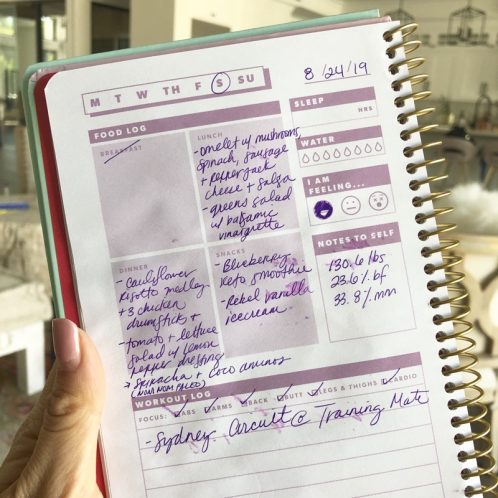 M T W TH F S SU
8/24/19
SLEEP
HRS
FOOD LOG
BREAKFAST
LUNCH
- omelet w/ mushrooms,
spinach, sausage
+ pepperjack
cheese + salsa
- greens salad
w/ balsamic
vinaigrette
WATER
I AM
FEELING...
DINNER
- Cauliflower
Risotto medley
+ 3 chicken
drumsticks +
- tomato + lettuce
salad w/ lemon
pepper dressing
→ Sriracha + coco aminos
(NOM NOM PALEO)
SNACKS
- Blueberry
Keto smoothie
- Rebel vanilla
icecream
NOTES TO SELF
130.6 lbs
23.6% bf
33.8% mm
WORKOUT LOG
FOCUS: ABS ARMS BACK BUTT LEGS & THIGHS CARDIO
- Sydney Circuit @ Training Mate